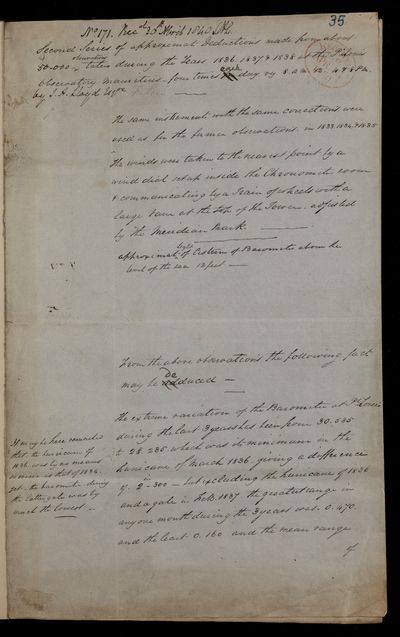 35
No 171. Recd 30th April 1840
Second Series of approximal Deductions made from about
50.000 observations taken during the Years 1836 1837 & 1838 at the Pt Louis
Observatory Mauritius four times each day viz 8 a.m. 12. 4 & 8 P.M.
by J. A. Lloyd Esqre
The same instruments with the same corrections were
used as for the former observations in 1833. 1834 & 1835
The winds were taken to the nearest point by a
wind dial set up inside the Chronometer room
& communicating by a Train of wheels with a
large Vane at the top of the Tower. adjusted
by the Meridian Mark.
approximate height of Cistern of Barometer above the
level of the sea feet
From the above observations the following fact
may be deduced
The extreme variation of the Barometer at Pt Louis
during the last 3 years has been from 30.535
to 28.235 which was its minimum in the
hurricane of March 1836. giving a difference
of 2in 300 but excluding the hurricane of 1836
and a gale in Feb. 1837 the greatest range in
any one month during the 3 years was. 0.470
and the least 0.160 and the mean range
of
It may be here remarked
that the hurricane of
1836 was by no means
as that of 1834.
yet the barometer during
the latter gale was by
much the lowest